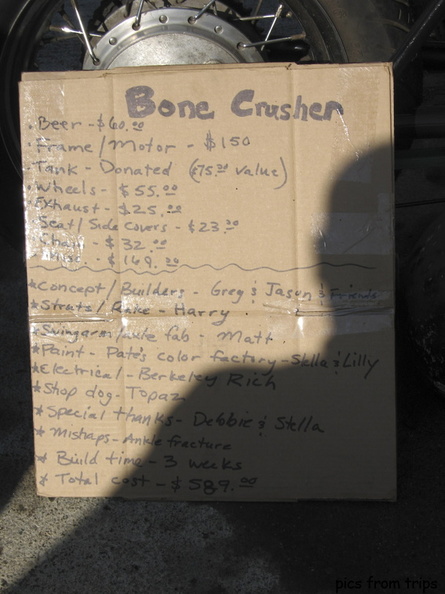 Bone Crusher
· Beer - $60.00
· Frame/Motor - $150
Tank - Donated ($75.00 value)
· Wheels - $55.00
· Exhaust - $25.00
Seat/Side covers - $23.00
· Chain - $32.00
· Misc. - $169.00
* Concept/Builders - Greg & Jason & Friends
* Struts/Rake - Harry.
* Swingarm/axle fab - Matt.
* Paint - Pate's color factory - Stella & Lilly
* Electrical - Berkeley Rich
* Shop dog - Topaz
* Special thanks - Debbie & Stella
* Mishaps - Ankle fracture
* Build time - 3 weeks
* Total cost - $589.00
pics from trips